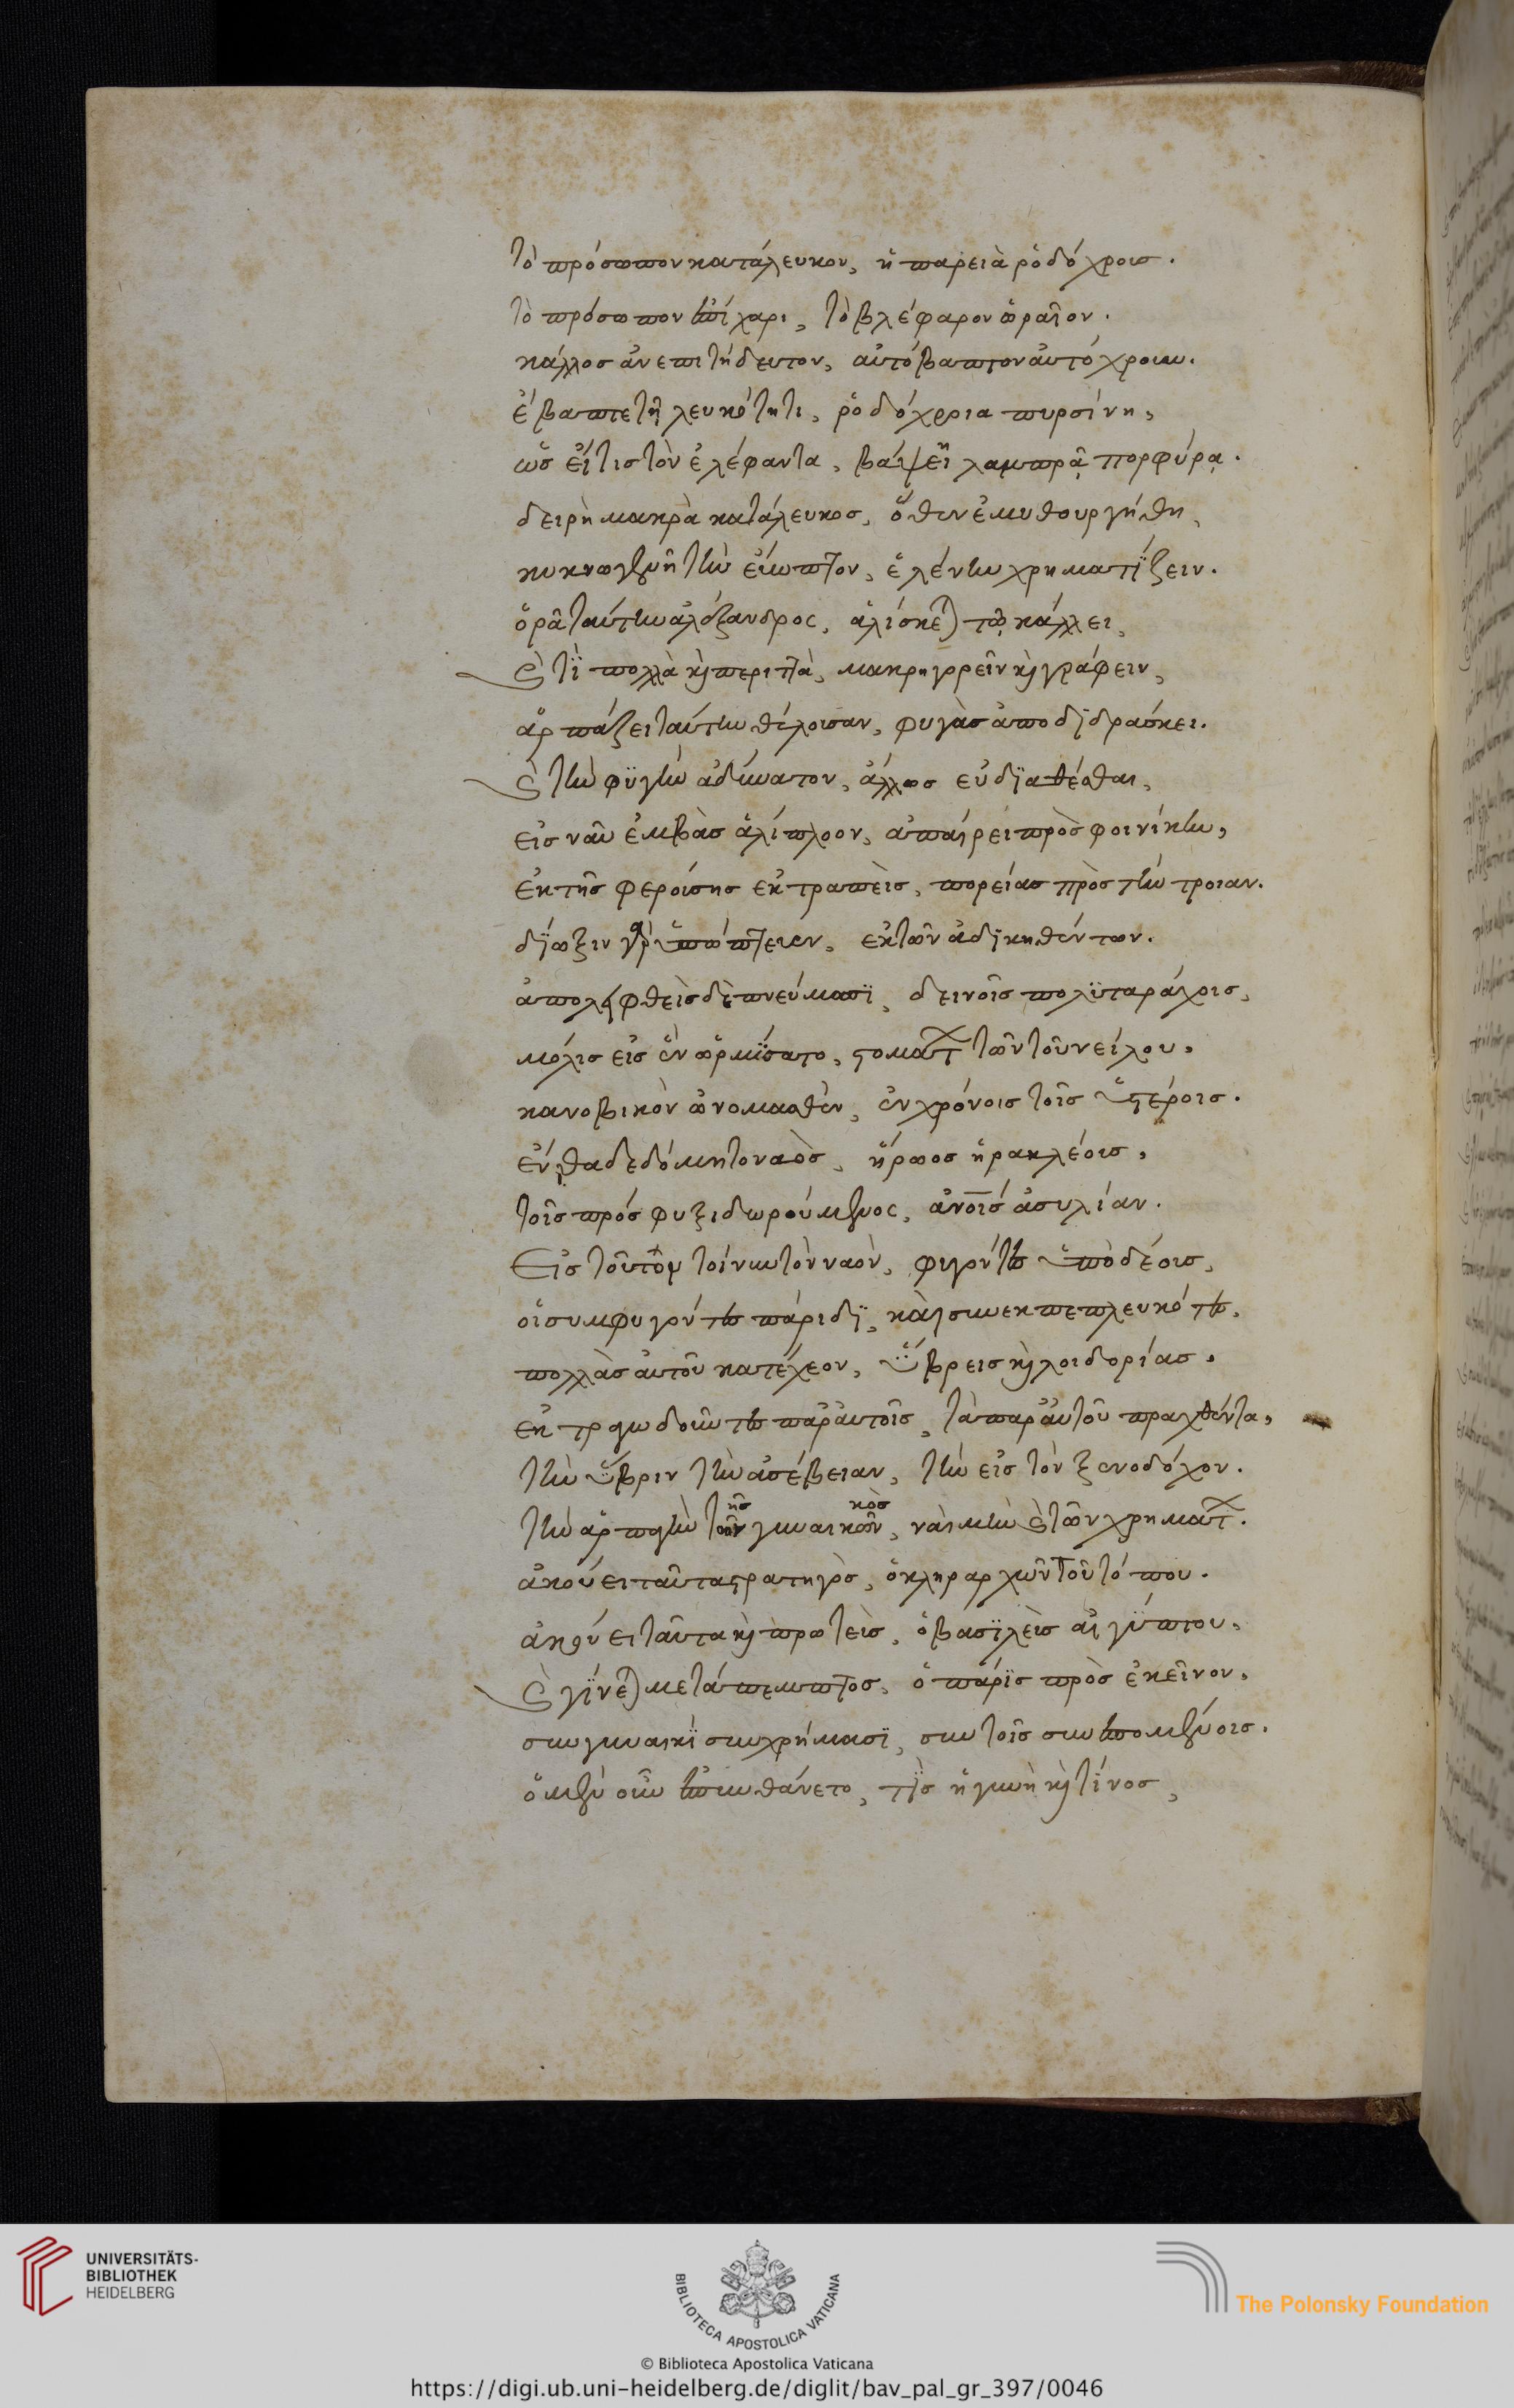 τὸ πρόσωπον κατάλευκον, ἡ παρειὰ ῥοδόχρους.
τὸ πρόσωπον ἐπίχαρι, τὸ βλέφαρον ὡραῖον.
κάλλος ἀνεπιτήδευτον, αὐτόβαπτον αὐτόχρουν.
ἔβαπτε τῇ λευκότητι, ῥοδόχροια πυρσίνη,
ὡς εἴ τις τὸν ἐλέφαντα, βάψει λαμπρᾷ πορφύρᾳ.
δειρὴ μακρὰ κατάλευκος, ὅθεν ἐμυθουργήθη,
κυκνογενῆ τὴν εὔοπτον, ἑλένην χρηματίζειν.
ὁρᾷ ταύτην ἀλέξανδρος, ἁλίσκεται τῷ κάλλει,
καὶ τί πολλὰ καὶ περιττὰ, μακρηγορεῖν καὶ γράφειν,
ἁρπάζει ταύτην θέλουσαν, φυγὰς ἀποδιδράσκει.
καὶ τὴν φυγὴν ἀδύνατον, ἄλλως εὖ διαθέσθαι,
εἰς ναῦν ἐμβὰς ἁλίπλοον, ἀπαίρει πρὸς φοινίκην,
ἐκ τῆς φερούσης ἐκτραπεὶς, πορείας πρὸς τὴν τροίαν.
δίωξιν γὰρ ὑπώπτευεν, ἐκ τῶν ἀδικηθέντων.
ἀπολειφθεὶς δὲ πνεύμασι, δεινοῖς πολυταράχοις,
μόλις εἰς ἓν ὡρμίσατο, στομάτων τῶν τοῦ νείλου.
κανοβικὸν ὠνομασθὲν, ἐν χρόνοις τοῖς ὑστέροις.
ἔνθα δεδόμητο ναὸς, ἥρωος ἡρακλέους,
τοῖς πρόσφυξι δωρούμενος, ἀνοις ἀσυλίαν.
Εἰς τοῦτον τοίνυν τὸν ναὸν, φυγόντες ὑπὸ δέους,
οἱ συμφυγόντες πάριδι, καὶ συνεκπεπλευκότες,
πολλὰς αὐτοῦ κατέχεον, ὕβρεις καὶ λοιδορίας.
ἐκτραγωδοῦντες παρ' αὐτοῖς, τὰ παρ' αὐτοῦ πραχθέντα,
τὴν ὕβριν τὴν ἀσέβειαν, τὴν εἰς τὸν ξενοδόχον.
τὴν ἁρπαγὴν τῶν γυναικῶν, ναὶ μὴν καὶ τῶν χρημάτων.
ῆς κὸς
ἀκούει ταῦτα στρατηγὸς, ὁ κληραρχῶν τοῦ τόπου.
ἀκούει ταῦτα καὶ πρωτεὺς, ὁ βασιλεὺς αἰγύπτου,
καὶ γίνεται μετάπεμπτος, ὁ πάρις πρὸς ἐκεῖνον,
συν γυναικὶ συν χρήμασι, συν τοῖς συνεπομένοις.
ὁ μὲν οὖν ἐπυνθάνετο, τίς ἡ γυνὴ καὶ τίνος,
UNIVERSITÄTS-
BIBLIOTHEK
HEIDELBERG
BIBLIOTECA APOSTOLICA VATICANA
The Polonsky Foundation
© Biblioteca Apostolica Vaticana
https://digi.ub.uni-heidelberg.de/diglit/bav_pal_gr_397/0046